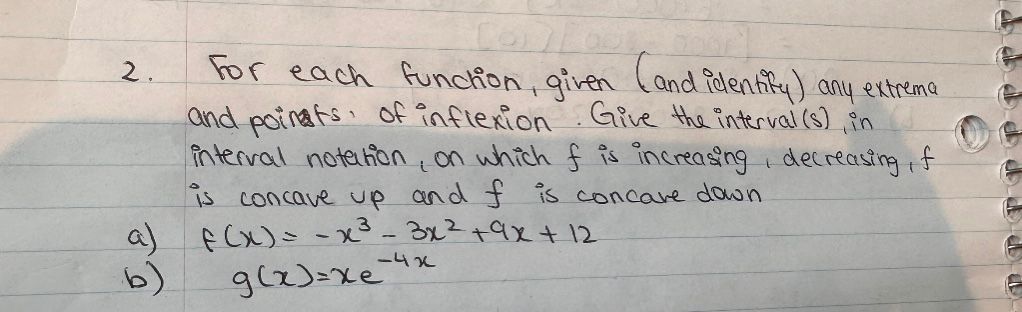 2. For each function, given (and identify) any extrema
and points. of inflexion. Give the interval(s), in
interval notation, on which f is increasing, decreasing, f
is concave up and f is concave down
a) f(x) = -x³ - 3x² + 9x + 12
b) g(x)=xe⁻⁴ˣ